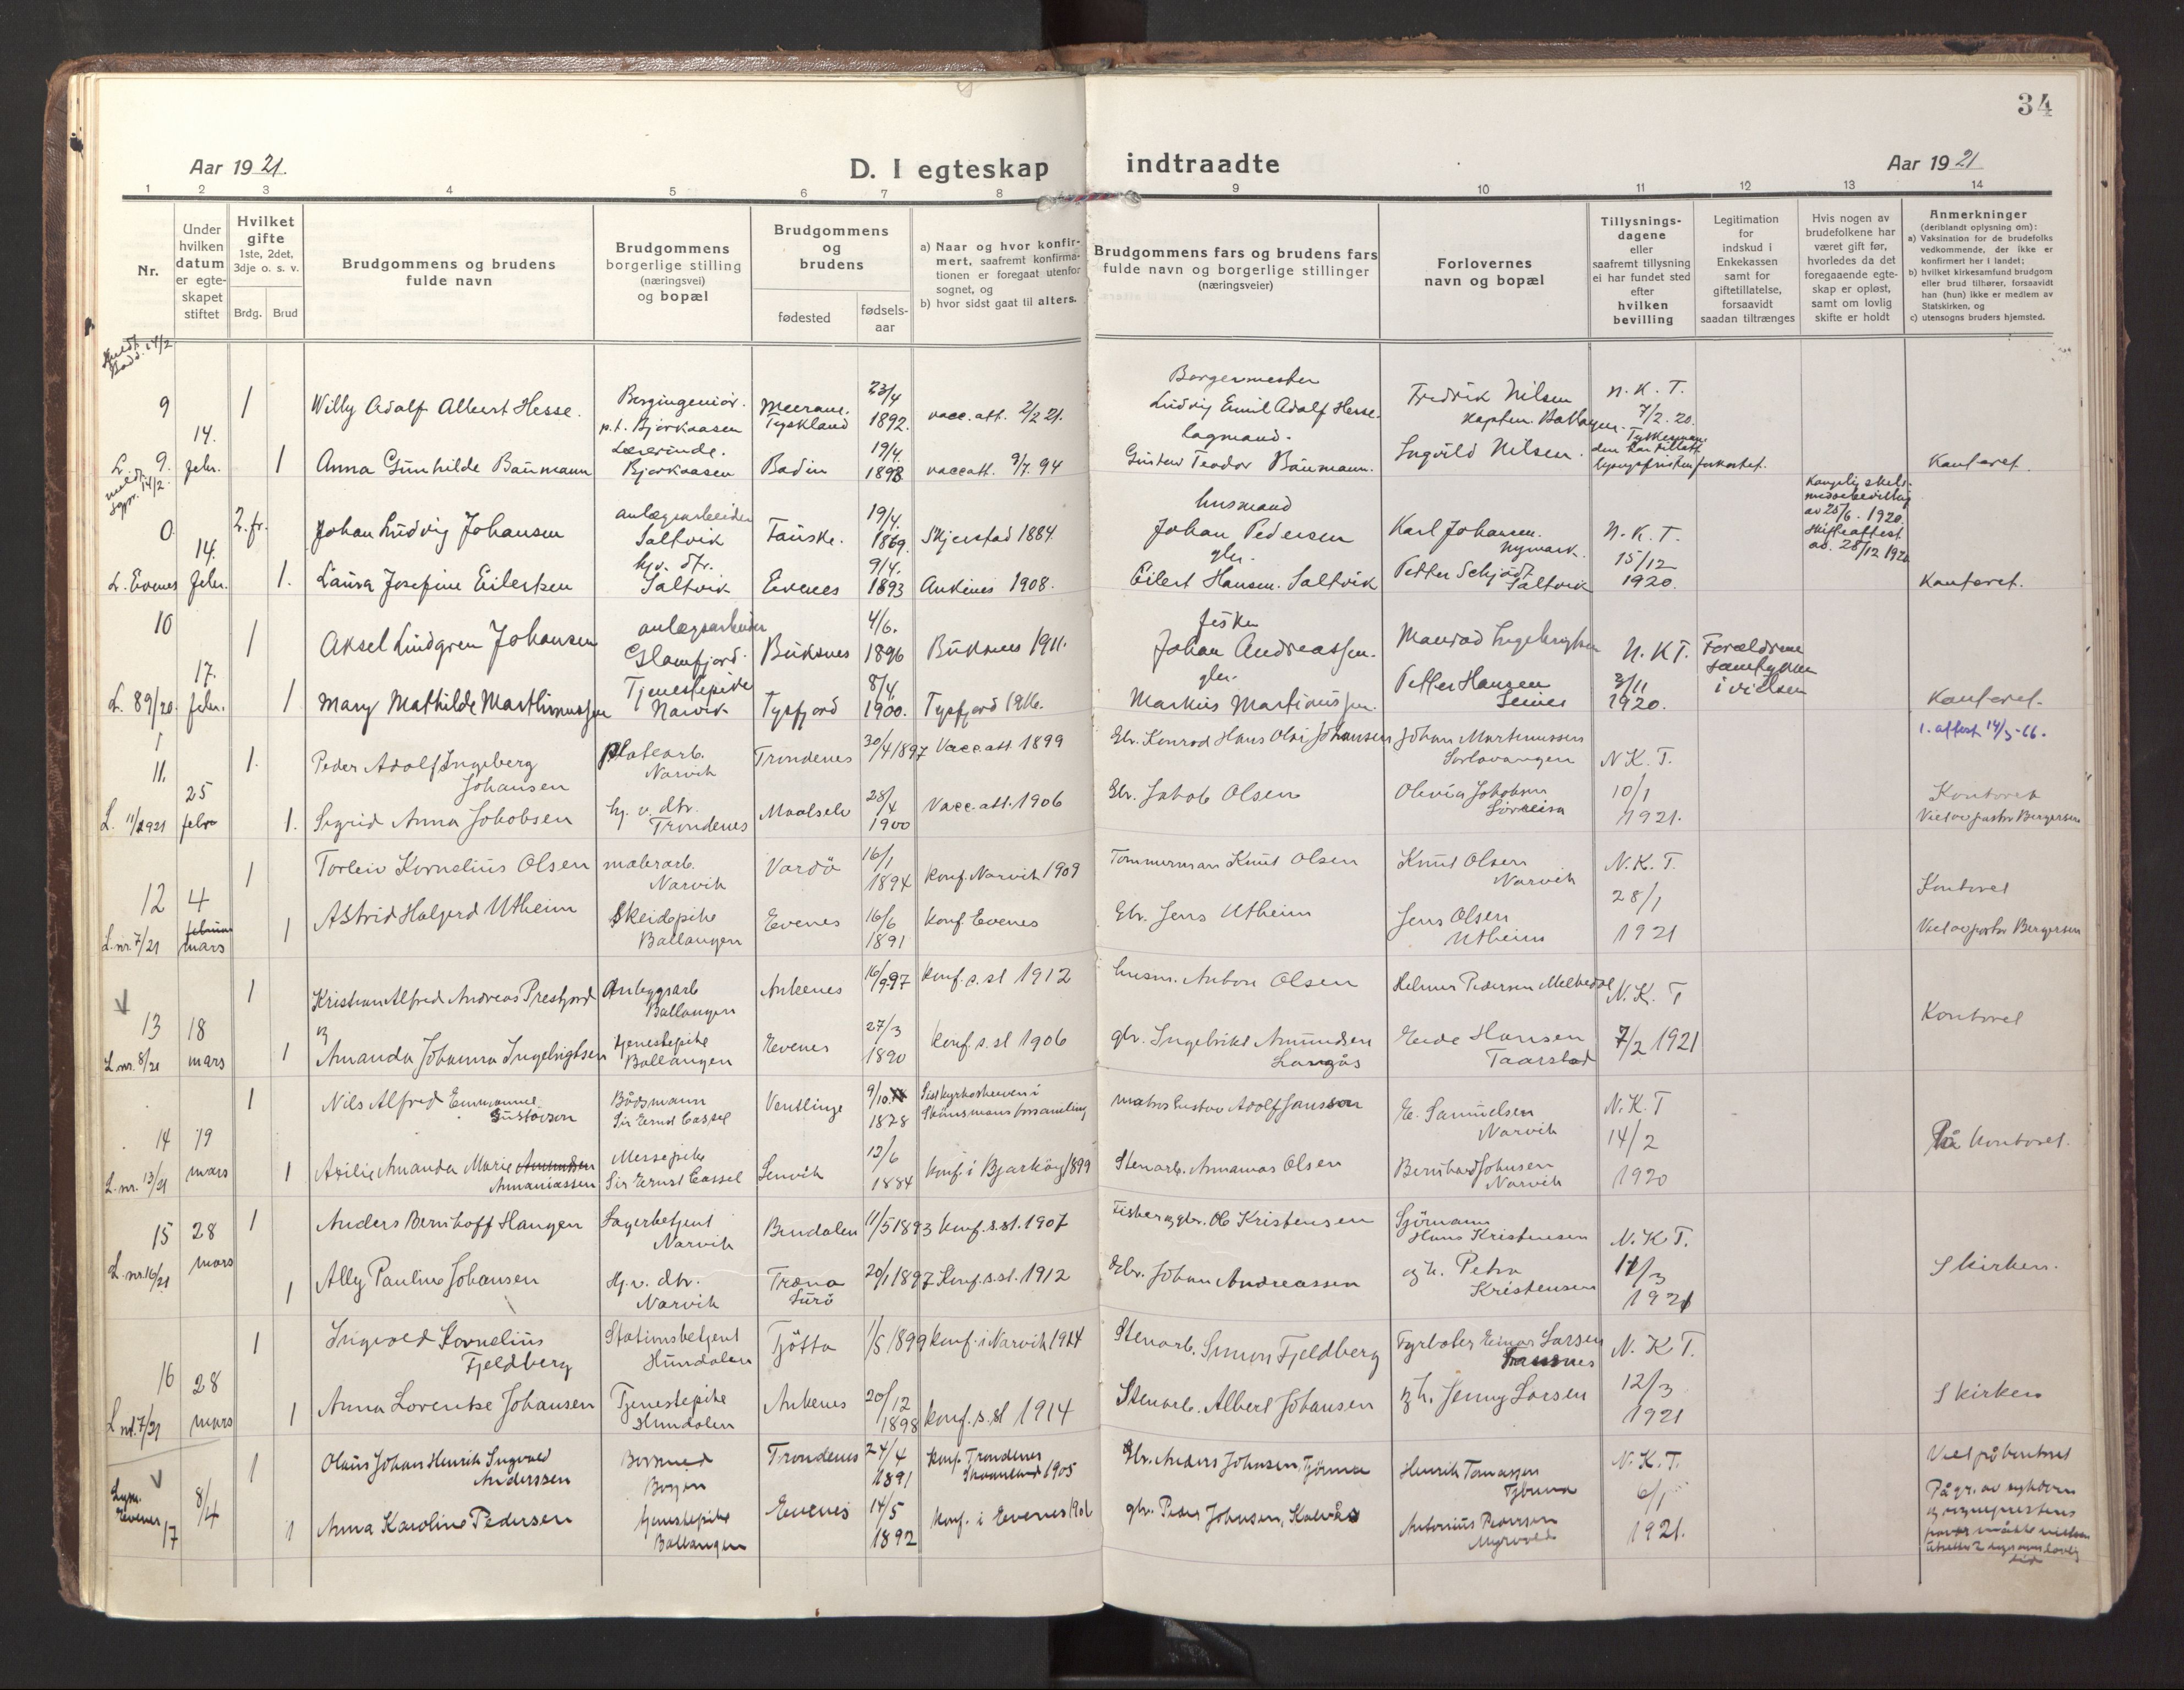 34
Aar 1921.
D. I egteskap indtraadte
Aar 1921
1 2 3 4 5 6 7 8 9 10 11 12 13 14
Nr.
Under hvilken datum er egte-skapet stiftet
Hvilket gifte 1ste, 2det, 3dje o. s. v.
Brdg. Brud
Brudgommens og brudens fulde navn
Brudgommens borgerlige stilling (næringsvei) og bopæl
Brudgommens og brudens
fødested
fødsels-aar
a) Naar og hvor konfir-mert, saafremt konfirma-tionen er foregaat utenfor sognet, og
b) hvor sidst gaat til alters.
Brudgommens fars og brudens fars fulde navn og borgerlige stillinger (næringsveier)
Forlovernes navn og bopæl
Tillysnings-dagene eller saafremt tillysning ei har fundet sted efter hvilken bevilling
Legitimation for indskud i Enkekassen samt for giftetillatelse, forsaavidt saadan tiltrænges
Hvis nogen av brudefolkene har været gift før, hvorledes da det foregaaende egte-skap er opløst, samt om lovlig skifte er holdt
Anmerkninger
(deriblandt oplysning om):
a) Vaksination for de brudefolks vedkommende, der ikke er konfirmert her i landet;
b) hvilket kirkesamfund brudgom eller brud tilhører, forsaavidt han (hun) ikke er medlem av Statskirken, og
c) utensogns bruders hjemsted.
9 1 Willy Adolf Albert Hesse. Bergingeniør. p.t. Bjørkaasen Meerane. Tyskland 23/4 1892. vacc. att. 2/2 21. Borgermester Ludvig Emil Adolf Hesse. Fredrik Nilsen kaptein. Ballangen. N. K. T. 7/2. 20.
L. 9. 14. febr. 1 Anna Gunhilde Baumann Lærerinde. Bjørkaasen Bodin 19/4. 1893 vacc att. 9/7. 94 lagmand. Gustav Teodor Baumann. Ingvild Nilsen. Kontoret.
0 2. fr. Johan Ludvig Johansen anlægsarbeider Saltvik Fauske. 19/4. 1869. Skjerstad 1884. husmand Johan Pedersen Karl Johansen. Nymark. N. K. T. Kongelig skils-missebevilling av 25/6. 1920. Skifteattest av. 28/12 1920
L. Evenes 14. febr. 1. Laura Josefine Eilertsen hj.v. dtr. Saltvik Evenes 9/4. 1893 Ankenes 1908. gbr. Eilert Hansen. Saltvik Petter Schjødt Saltvik 15/12 1920. Kontoret.
10 1 Aksel Lindgren Johansen anlægsarbeider Glomfjord. Buksnes 4/6. 1896 Buksnes 1911. fisker Johan Andreassen. N. K. T. Forældrene samtykker i vielsen
L. 89/20. 17. febr. 1 Mary Mathilde Marthinussen Tjenestepike Narvik Tysfjord 8/4. 1900. Tysfjord 1916. gbr. Markus Martinussen. Petter Hansen 3/11 1920. Kontoret.
1. attest 14/3-66.
11. 1. Peder Adolf Ingeberg Johansen platearb. Narvik Trondenes 30/4 1897 Vacc. att 1899 Gbr. Konrad Hans Olai Johansen Johan Martinussen Sørlavangen N. K. T.
L. 11/1921 25 febr 1. Sigrid Anna Jakobsen hj. v. dtr. Trondenes Maalselv 28/4 1900 Vacc. att. 1906 Gbr. Jakob Olsen Olivia Jakobsen Sørreisa 10/1 1921. Kontoret Viet av pastor Bergersen
12 1 Torleiv Kornelius Olsen malerarb. Narvik Vardø 16/1 1894 konf. Narvik 1909 Tømmermann Knut Olsen Knut Olsen Narvik N. K. T. Kontoret
L. nr. 7/21 4 februar mars 1 Astrid Halgerd Utheim Skeidepike Ballangen Evenes 16/6 1891 konf Evenes Gbr. Jens Utheim Jens Olsen Utheim 28/1 1921 Viet av pastor Bergersen
13 1 Kristian Alfred Andreas Presfjord Anleggsarb Ballangen Ankenes 16/9 97 konf. s. st 1912 husm. Anton Olsen Helmer Pedersen Melkedal N. K. T Kontoret
L. nr. 8/21 18 mars 1 og Amanda Johanna Ingebrigtsen tjenestepike Ballangen Evenes 27/3 1890 konf s. st 1906 gbr. Ingebrikt Amundsen Langås Eide Hansen Taarstad 7/2 1921
14 1 Nils Alfred Emmanuel Gustavson Båtsmann Sir Ernst Cassel Ventlinge 9/10 1878 matros Gustav Adolf Jansson E. Samuelsen Narvik N. K. T
L. nr. 13/21 19 mars 1 Axilie Amanda Marie Amundsen Annaniassen Messepike Sir Ernst Cassel Lenvik 12/6 1884 konf. i Bjarkøy 1899 Stenarb. Annanias Olsen Bernhard Johnsen Narvik 14/2 1920 På kontoret.
15 28 1 Anders Bernhoff Haugen Lagerbetjent Narvik Beiadalen 11/5 1893 konf. s. st. 1907 Fisker og gbr. Ole Kristensen Sjømann Hans Kristensen N. K. T.
L. nr. 16/21 mars 1 Ally Pauline Johansen Hj. v. dtr. Narvik Træna Lurø 20/1 1897 Konf. s. st. 1912 Gbr. Johan Andreassen og h. Petra Kristensen 11/3 1921 I kirken.
16 1 Ingvald Kornelius Fjeldberg Stationsbetjent Hundalen Tjøtta 1/5 1899 konf. i Narvik 1914 Stenarb. Simon Fjeldberg Fyrbøter Einar Larsen N. K. T.
L nr. 17/21 28 mars 1 Anna Lorentse Johansen Tjenestepike Hundalen Ankenes 20/12 1898 konf. s. st 1914 Stenarb. Albert Johansen og h. Jenny Larsen 12/3 1921 I kirken
1 Olaus Johan Henrik Ingvald Anderssen Trondenes 24/4 1891 konf. Trondenes 1905 Gbr. Anders Johnsen, Henrik Tomassen N. K. T. Viet på kontoret
Lysn. Evenes 17 8/4 1 Anna Karoline Pedersen tjenestepike Ballangen Evenes 14/5 1892 konf. i Evenes gbr. Peder Johnsen, Antonius Pedersen Myrvold 6/1 1921. På gr. av sykdom